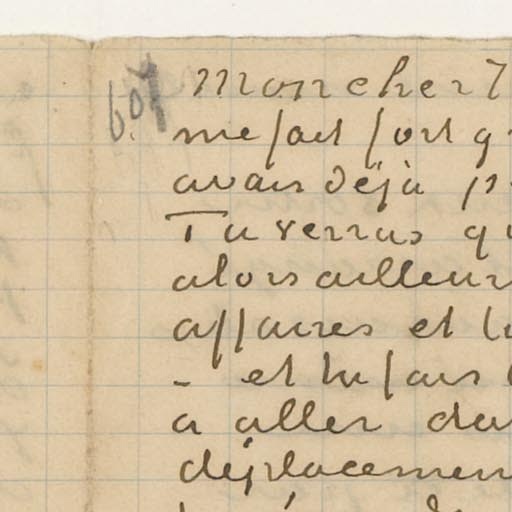 607
Mon cher T
me fait fort q
avais déjà p
Tu verras qu
alors ailleur
affaires et l
- et tu fais
a aller da
déplacemen